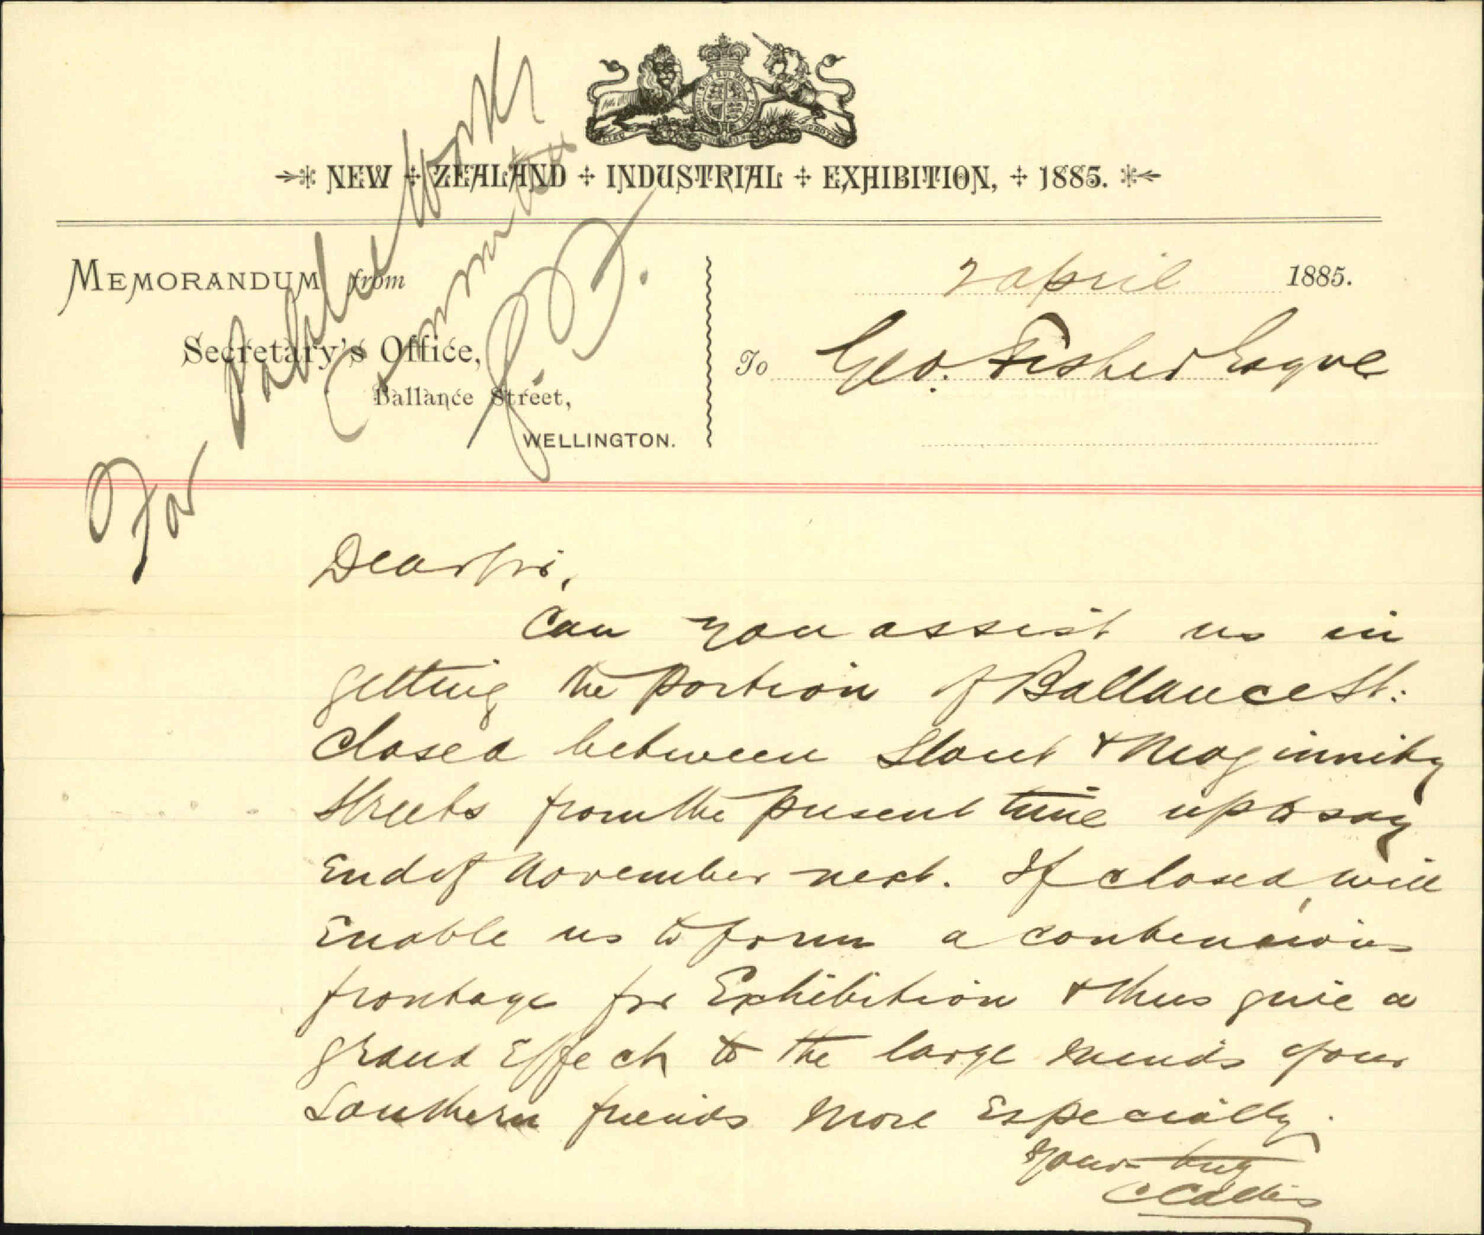 NEW ZEALAND INDUSTRIAL EXHIBITION, 1885.
MEMORANDUM from
Secretary's Office,
Ballance Street,
WELLINGTON.
2 april 1885.
To Geo. Fisher Esque
For Public Works
Committee
G. F.
Dear Sir,
Can you assist us in
getting the portion of Ballance St:
closed between Stout & Maginnity
Streets from the present time up to say
End of November next. If closed, will
Enable us to form a
frontage for Exhibition & thus give a
grand Effect to the large minds your
Southern friends more Especially.
Yours truly